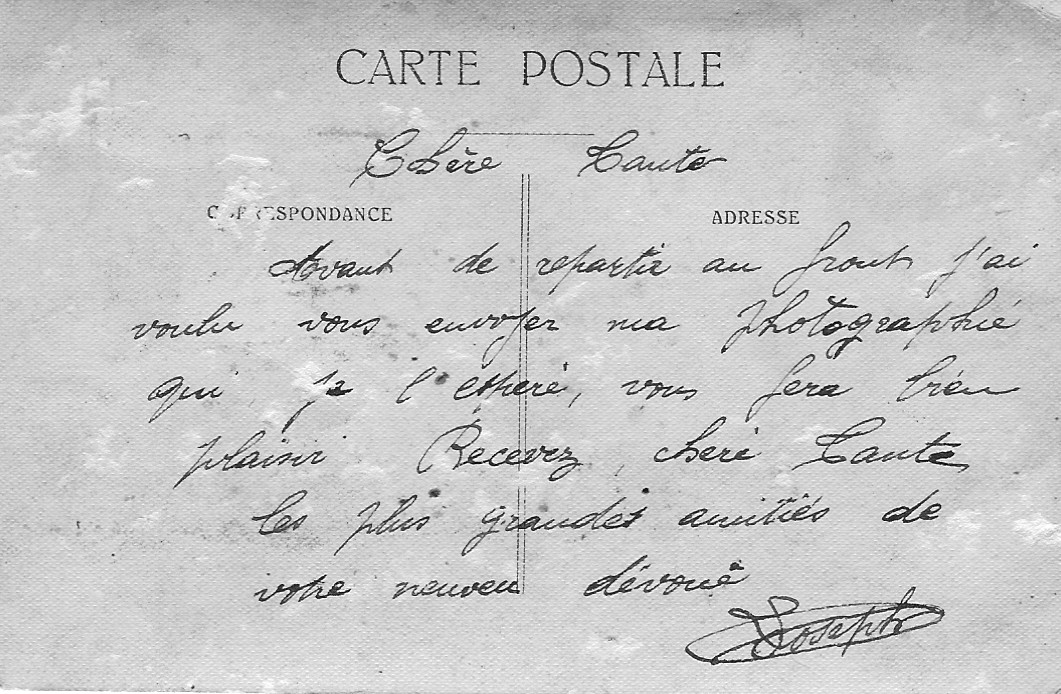 CARTE POSTALE
Chère Tante
CORRESPONDANCE
ADRESSE
Avant de repartir au front j'ai
voulu vous envoyer ma photographie
qui je l'espère, vous fera bien
plaisir Recevez, chère Tante
les plus grandes amitiés de
votre neuveu dévoué
Joseph